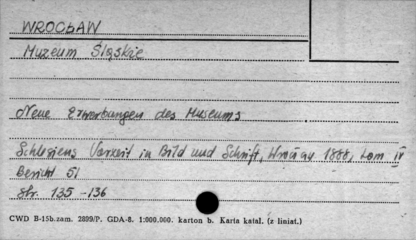 WROCŁAW
Muzeum Śląskie
Neue Erwerbungen des Museums
Schlesiens Vorzeit in Bild und Schrift, 1888, tom IV
Bericht 51
Str. 135-136
CWD B-15b.zam. 2899/P. GDA-8. 1:000.000. karton b. Karta katal. (z liniat.)